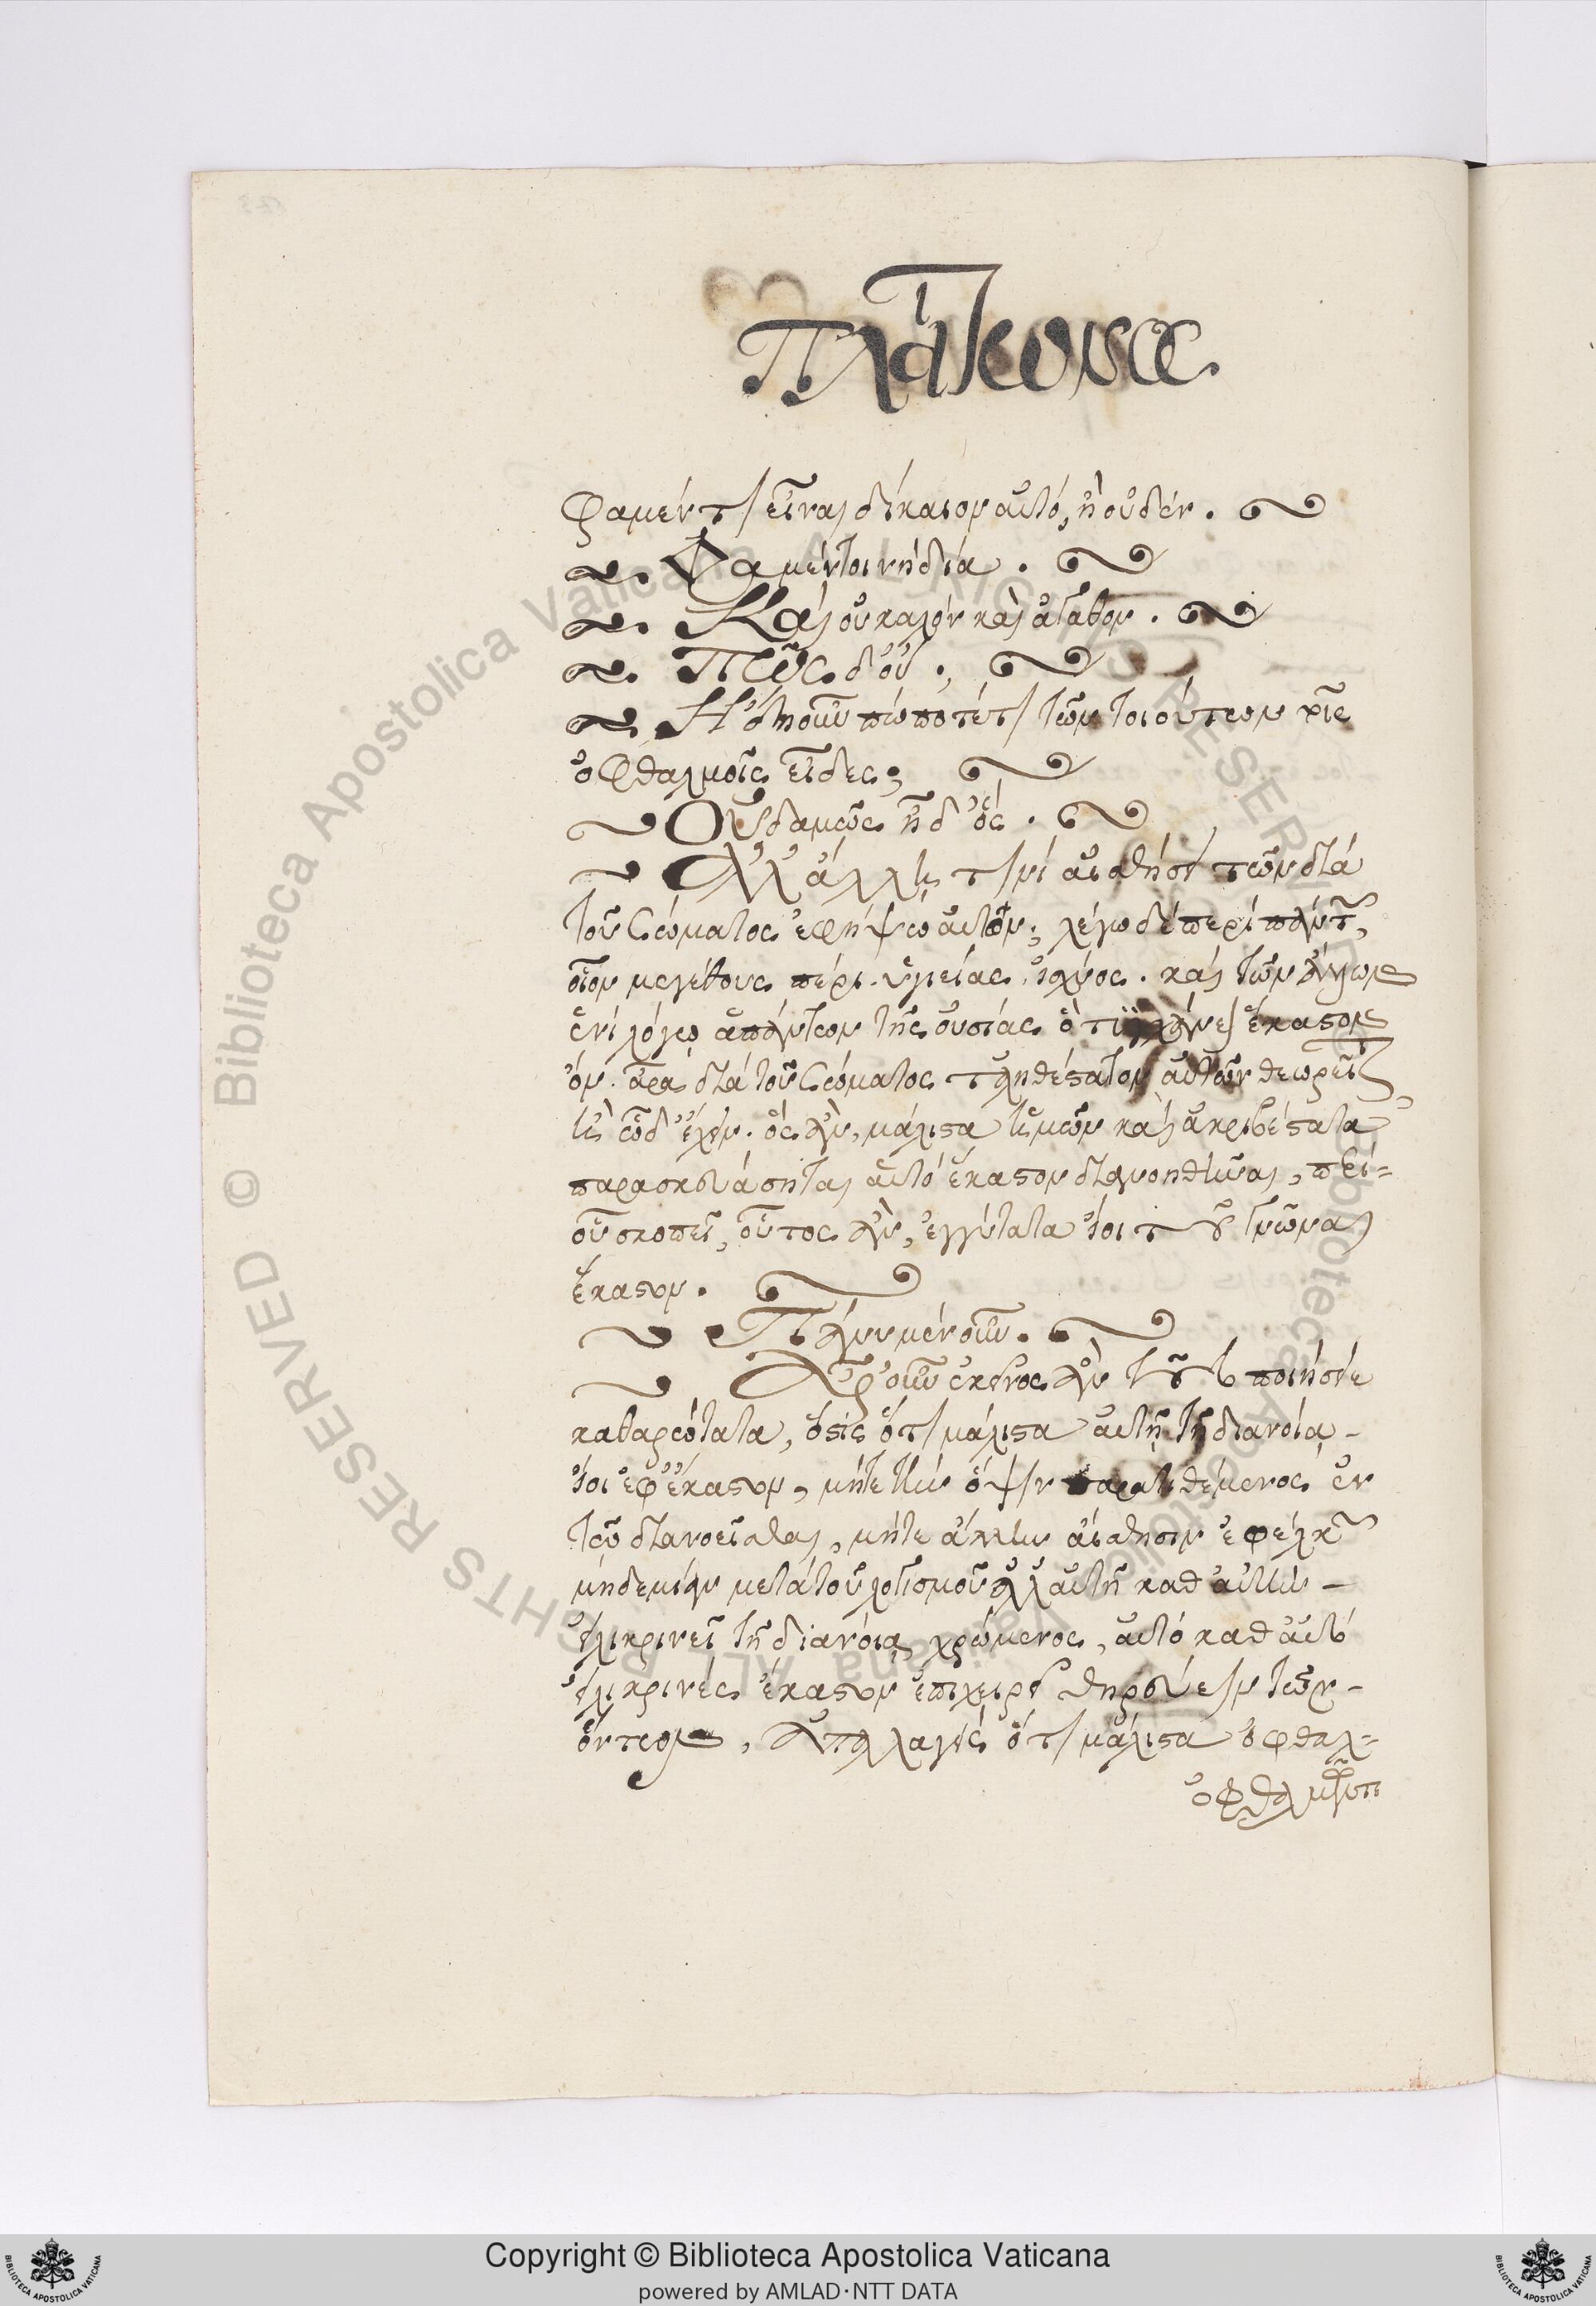 Πλάτωνος
Φαμέν τι εἶναι δίκαιον αὐτό, ἢ οὐδέν.
Φαμέν τοι νὴ δία.
Καὶ οὐ καλόν καὶ ἀγαθον.
Πῶς δ' οὔ.
Ἤδη οὖν πώποτέ τι τῶν τοιούτων τοῖς
ὀφθαλμοῖς εἶδες;
Οὐδαμῶς ἦ δ' ὅς.
Ἀλλ' ἄλλη τινί αἰσθήσει τῶν διά
τοῦ σώματος ἐφήψω αὐτῶν; λέγω δέ περί πάντ
οἷον μεγέθους πέρι. ὑγιείας. ἰσχύος. καὶ τῶν ἄλλων
ἑνί λόγῳ ἁπάντων τῆς οὐσίας ὅ τυγχάνει ἕκαστον
ὄν. ἆρα διά τοῦ σώματος τἀληθέστατον αὐτῶν θεωρεῖτ
ἢ ὧδ' ἔχει. ὅς ἄν, μάλιστα ἡμῶν καὶ ἀκριβέστατα
παρασκευάσηται αὐτό ἕκαστον διανοηθῆναι, περί
οὗ σκοπεῖ, οὗτος ἄν, ἐγγύτατα ἴοι τοῦ γνῶναι
ἕκαστον.
Πάνυ μέν οὖν.
Ἆρ' οὖν ἐκεῖνος ἄν τοῦτο ποιήσειε
καθαρώτατα, ὅστις ὅτι μάλιστα αὐτῇ τῇ διανοίᾳ
ἴοι ἐφ' ἕκαστον, μήτε τὴν ὄψιν παρατιθέμενος ἐν
τῷ διανοεῖσθαι, μήτε ἄλλην αἴσθησιν ἐφέλκ
μηδεμίαν μετά τοῦ λογισμοῦ ἀλλ' αὐτῇ καθ' αὑτὴν
εἰλικρινεῖ τῇ διανοίᾳ χρώμενος, αὐτό καθ' αὑτό
εἰλικρινές ἕκαστον ἐπιχειρεῖ θηρεύειν τῶν
ὄντων, ἀπαλλαγείς ὅτι μάλιστα ὀφθαλ-